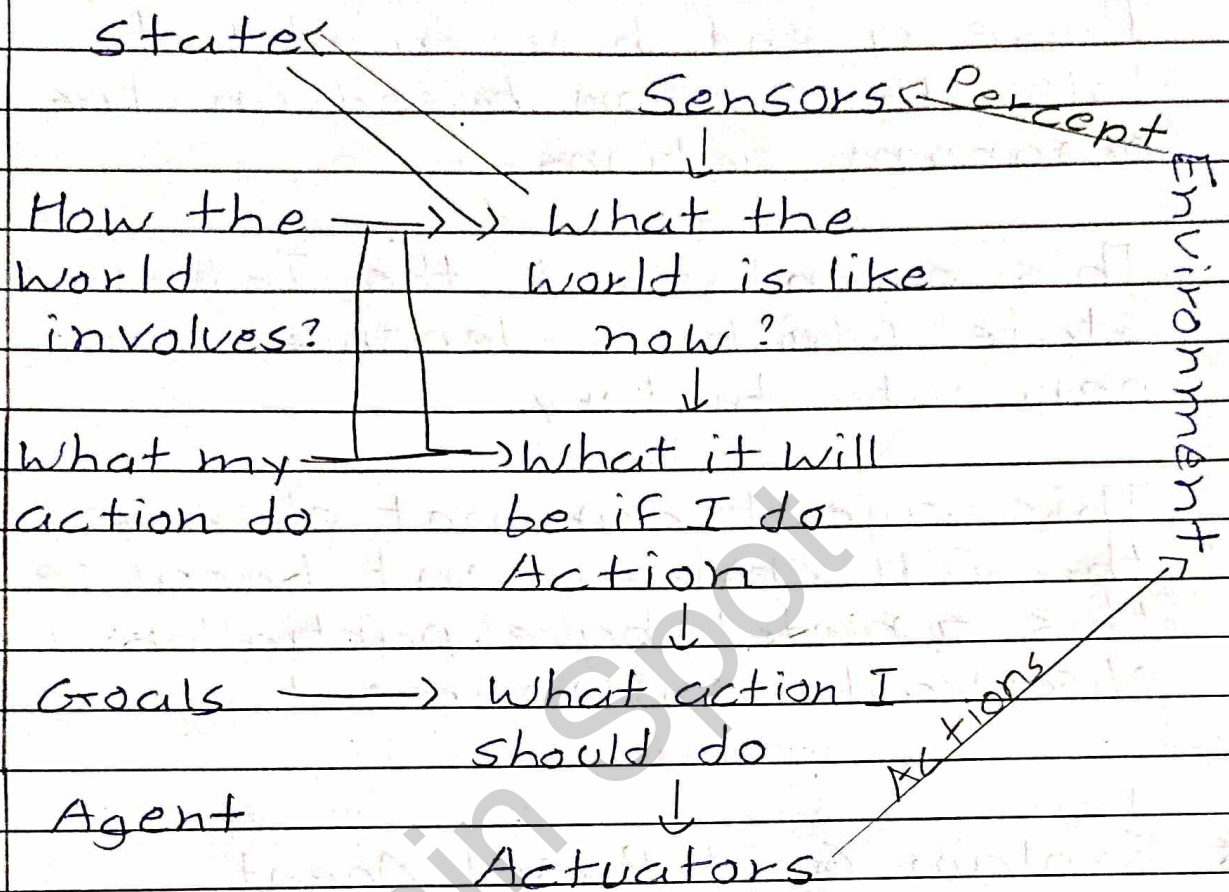 State
Sensors
Percept
Environment
How the
world
involves?
What the
world is like
now?
What my
action do
What it will
be if I do
Action
Goals
What action I
should do
Actions
Agent
Actuators
in Spot